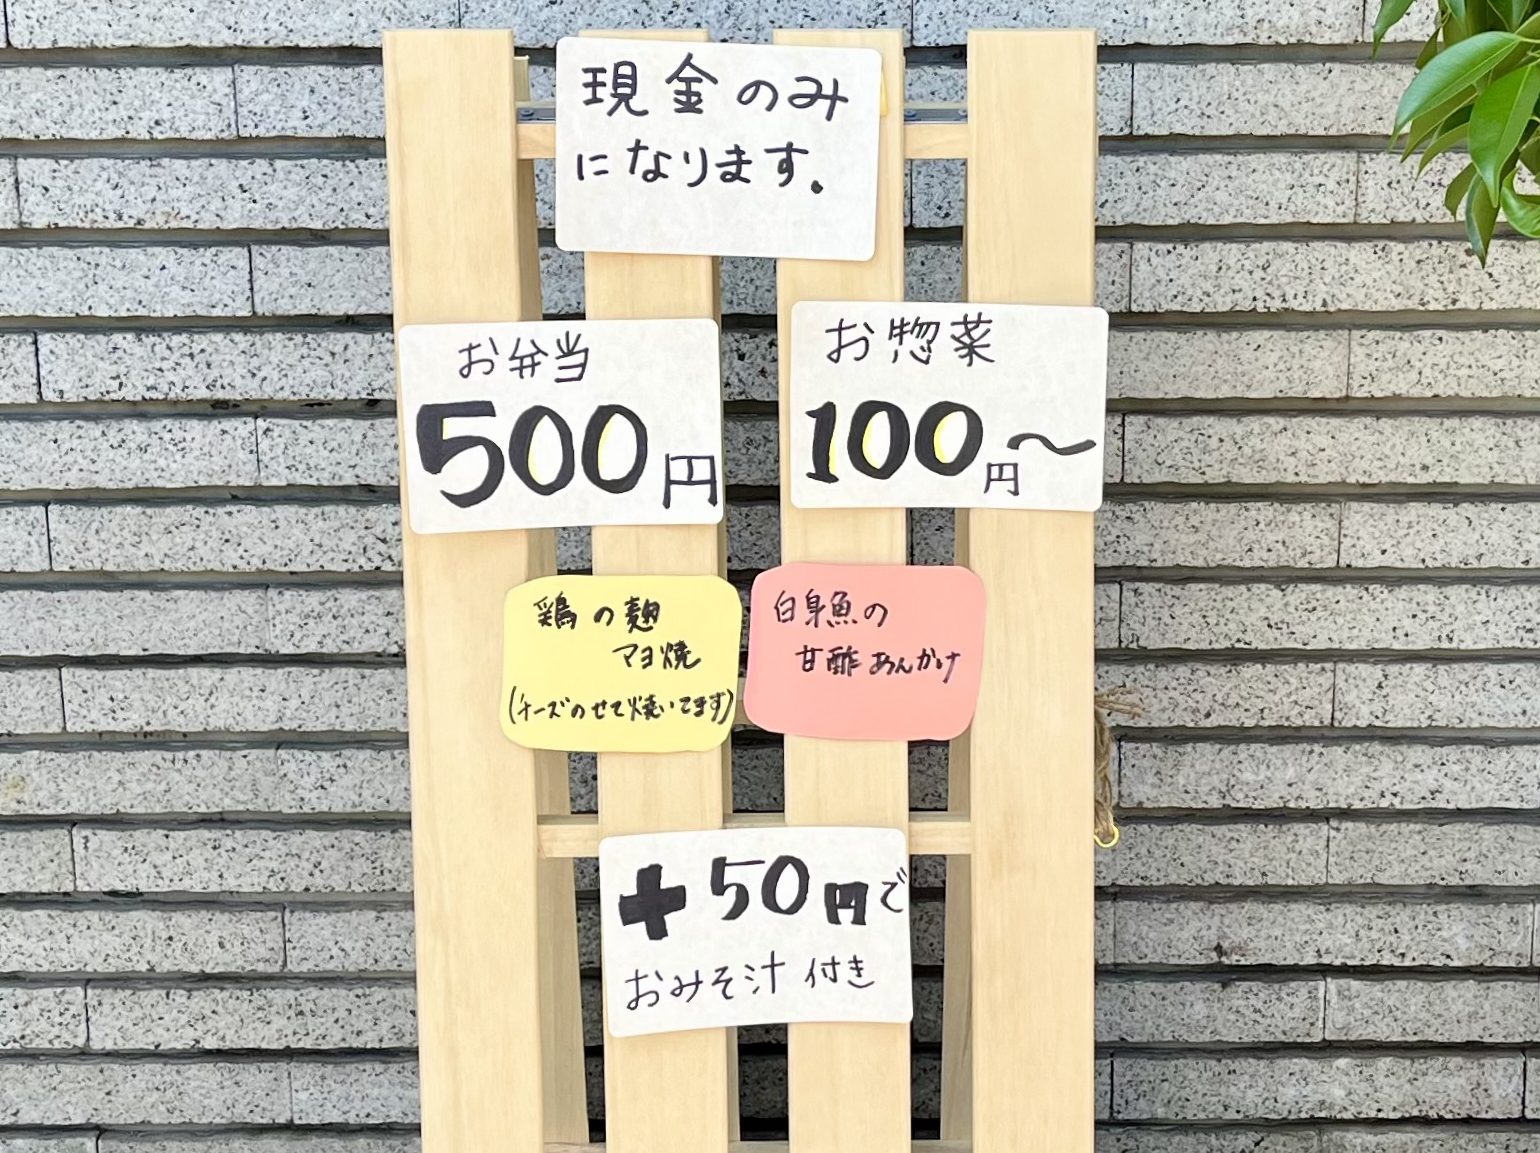 現金のみ
になります.
お弁当
500円
お惣菜
100円〜
鶏の麹
マヨ焼
(チーズのせて焼いてます)
白身魚の
甘酢あんかけ
+50円で
おみそ汁付き